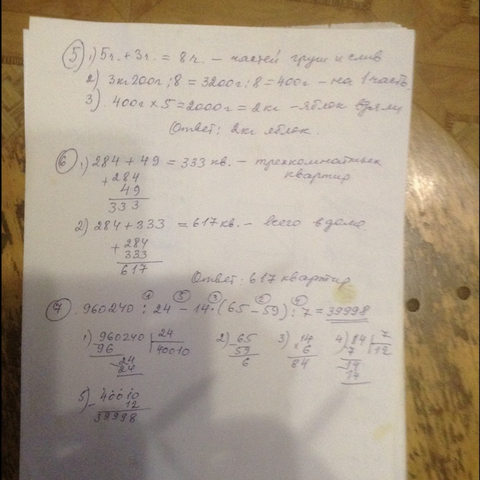 5 1) 5ч. + 3ч. = 8ч. – частей груш и слив
2) 3кг200г : 8 = 3200г : 8 = 400г – на 1 часть
3) 400г х 5 = 2000г = 2кг – яблок взяли
Ответ: 2кг яблок.
6 1) 284 + 49 = 333 кв. – трехкомнатных
квартир
+ 284
49
333
2) 284 + 333 = 617 кв. – всего в доме
+ 284
333
617
Ответ. 617 квартир
7. 960240 : 24 – 14 · (65 – 59) : 7 = 39998
1) 960240 | 24 2) – 65 3) 14 4) 84 | 7
96 | 40010 59 х 6 7 | 12
24 6 84 14
24 14
5) – 40010
12
39998